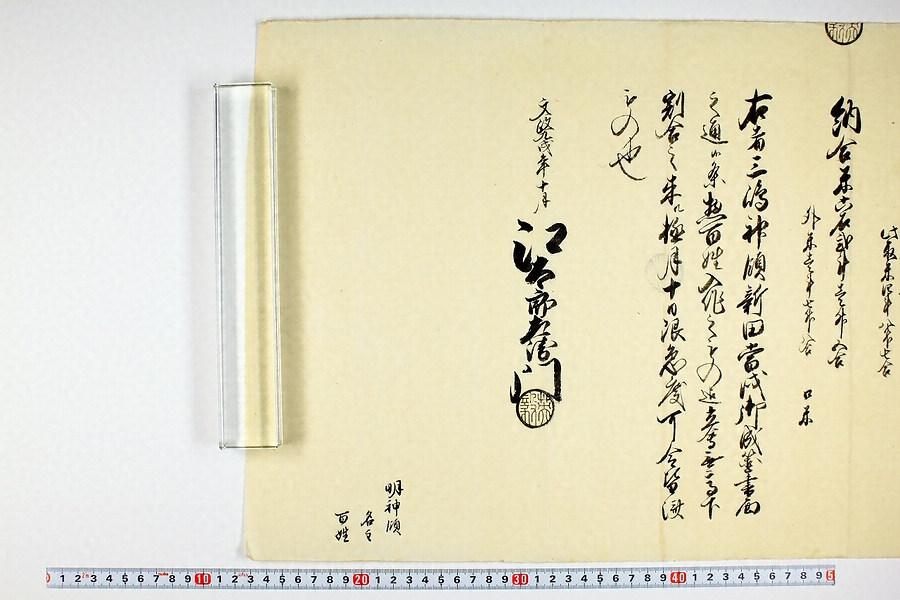 納合米六石弐斗壱升五合
外米壱斗七升八合
口米
右者三嶋神領新田当戌御成箇書面
之通候条惣百姓入作之もの迄立会無高下
割合之来ル極月十日限急度可令皆済
もの也
文政九戌年十月
江太郎左衛門
明神領
名主
百姓
1 2 3 4 5 6 7 8 9 10 1 2 3 4 5 6 7 8 9 20 1 2 3 4 5 6 7 8 9 30 1 2 3 4 5 6 7 8 9 40 1 2 3 4 5 6 7 8 9 5